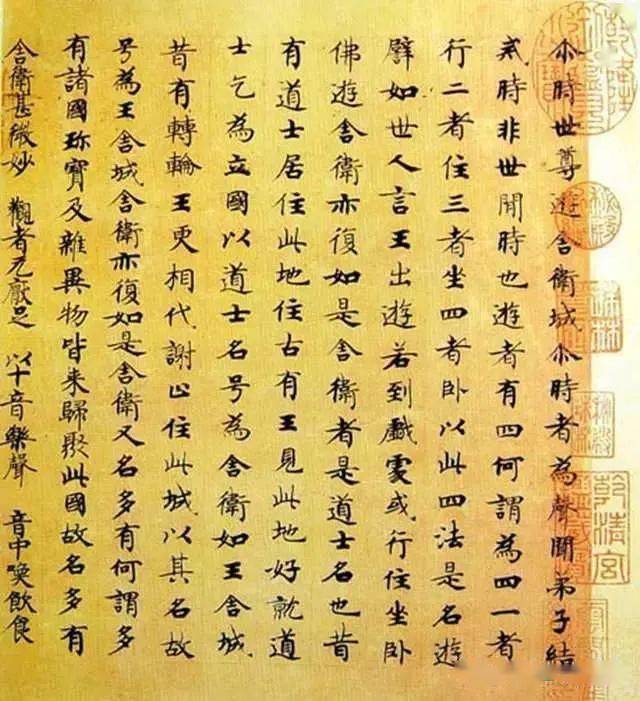 尒時世尊遊舍衛城尒時者為聲聞弟子結
戒時非世閒時也遊者有四何謂為四一者
行二者住三者坐四者卧以此四法是名遊
譬如世人言王出遊若到戲處或行住坐卧
佛遊舍衛亦復如是舍衛者是道士名也昔
有道士居住此地住古有王見此地好就道
士乞為立國以道士名号為舍衛如王舍城
昔有轉輪王更相代謝止住此城以其名故
号為王舍城舍衛亦復如是舍衛又名多有何謂多
有諸國珎寶及雜異物皆来歸聚此國故名多有
舍衛甚微妙 觀者无厭足 以十音樂聲 音中喚飲食
乾清宮